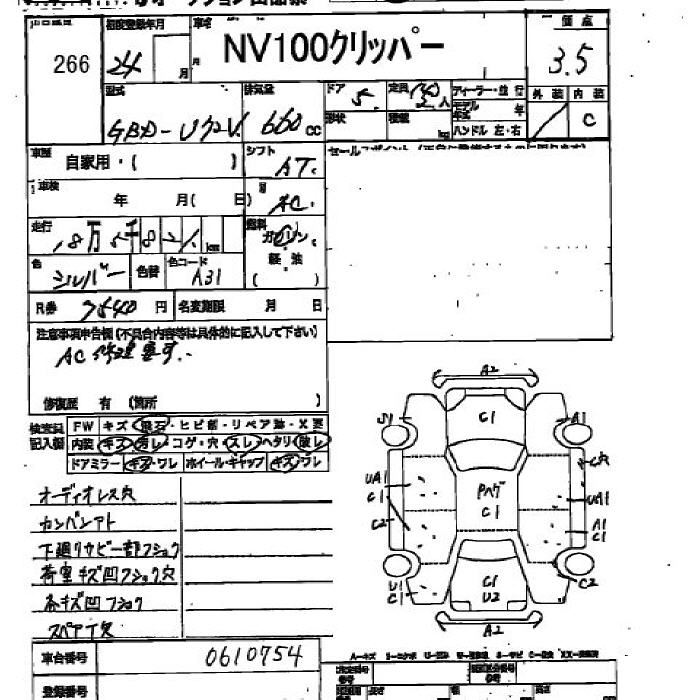 266
初度登録年月
24 月
車名
NV100クリッパー
評価点
3.5
型式
GBD-U72V
排気量
660cc
ドア
5
定員
人
形状
積載
kg
ディーラー・並行
モデル年式 年
ハンドル 左・右
外装 内装
C
車歴
自家用・( )
シフト
AT
セールスポイント
車検
年 月( 日)
AC
走行
8万5千821 km
燃料
ガソリン
軽油
( )
色
シルバー
色替
色コード
A31
R券
7540円
名変期限 月 日
注意事項申告欄(不具合内容等は具体的に記入して下さい)
AC修理要す.
修復歴 有(箇所 )
検査員記入欄
FW キズ・飛石・ヒビ部・リペア跡・X要
内装 キズ・汚レ・コゲ・穴・スレ・ヘタリ・破レ
ドアミラー キズ・ワレ ホイール・キャップ キズ・ワレ
オーディオレス穴
カンバンアト
下廻リサビ一部フショク
荷室キズ凹フショク穴
各キズ凹フショク
スペア欠
車台番号
0610754
登録番号
A2
C1
S1
A1
C穴
UA1
C1
PハゲC1
UA1
C2
A1
C1
U1
C1
C1
U2
C2
A2